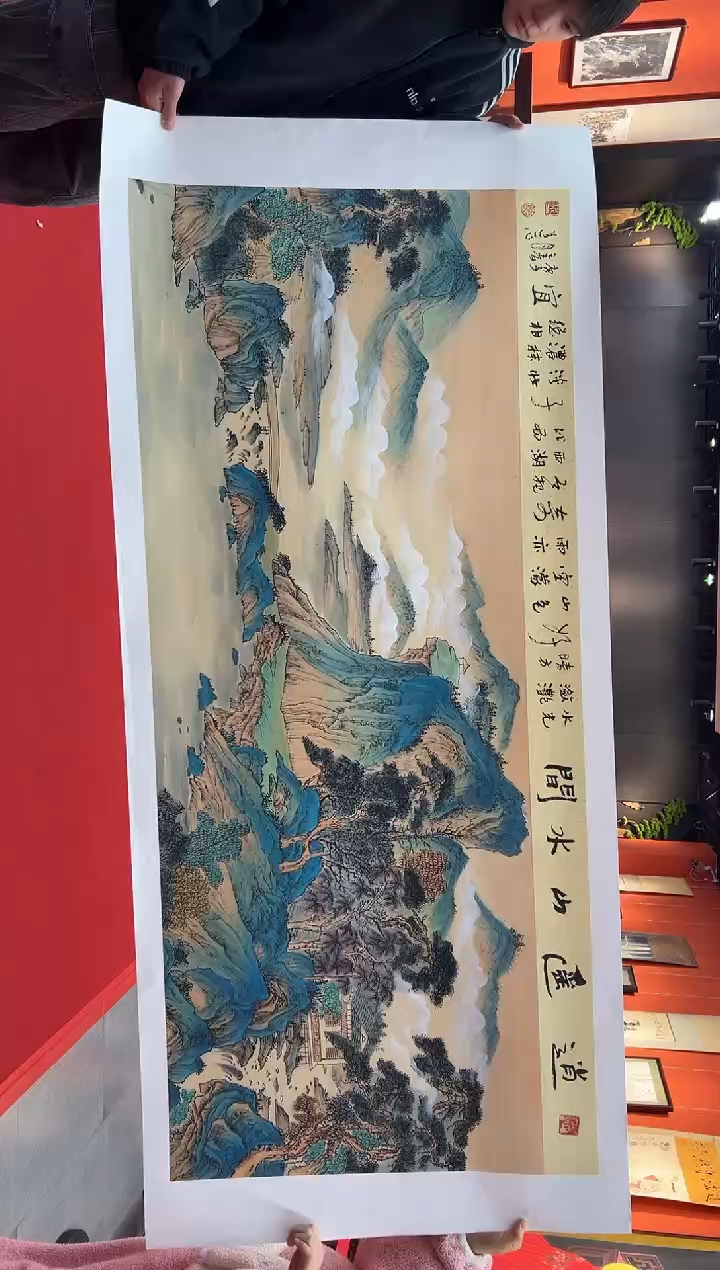 逍遥山水間
水光瀲灩晴方好
山色空濛雨亦奇
把西湖比西子
淡妝濃抹總相宜